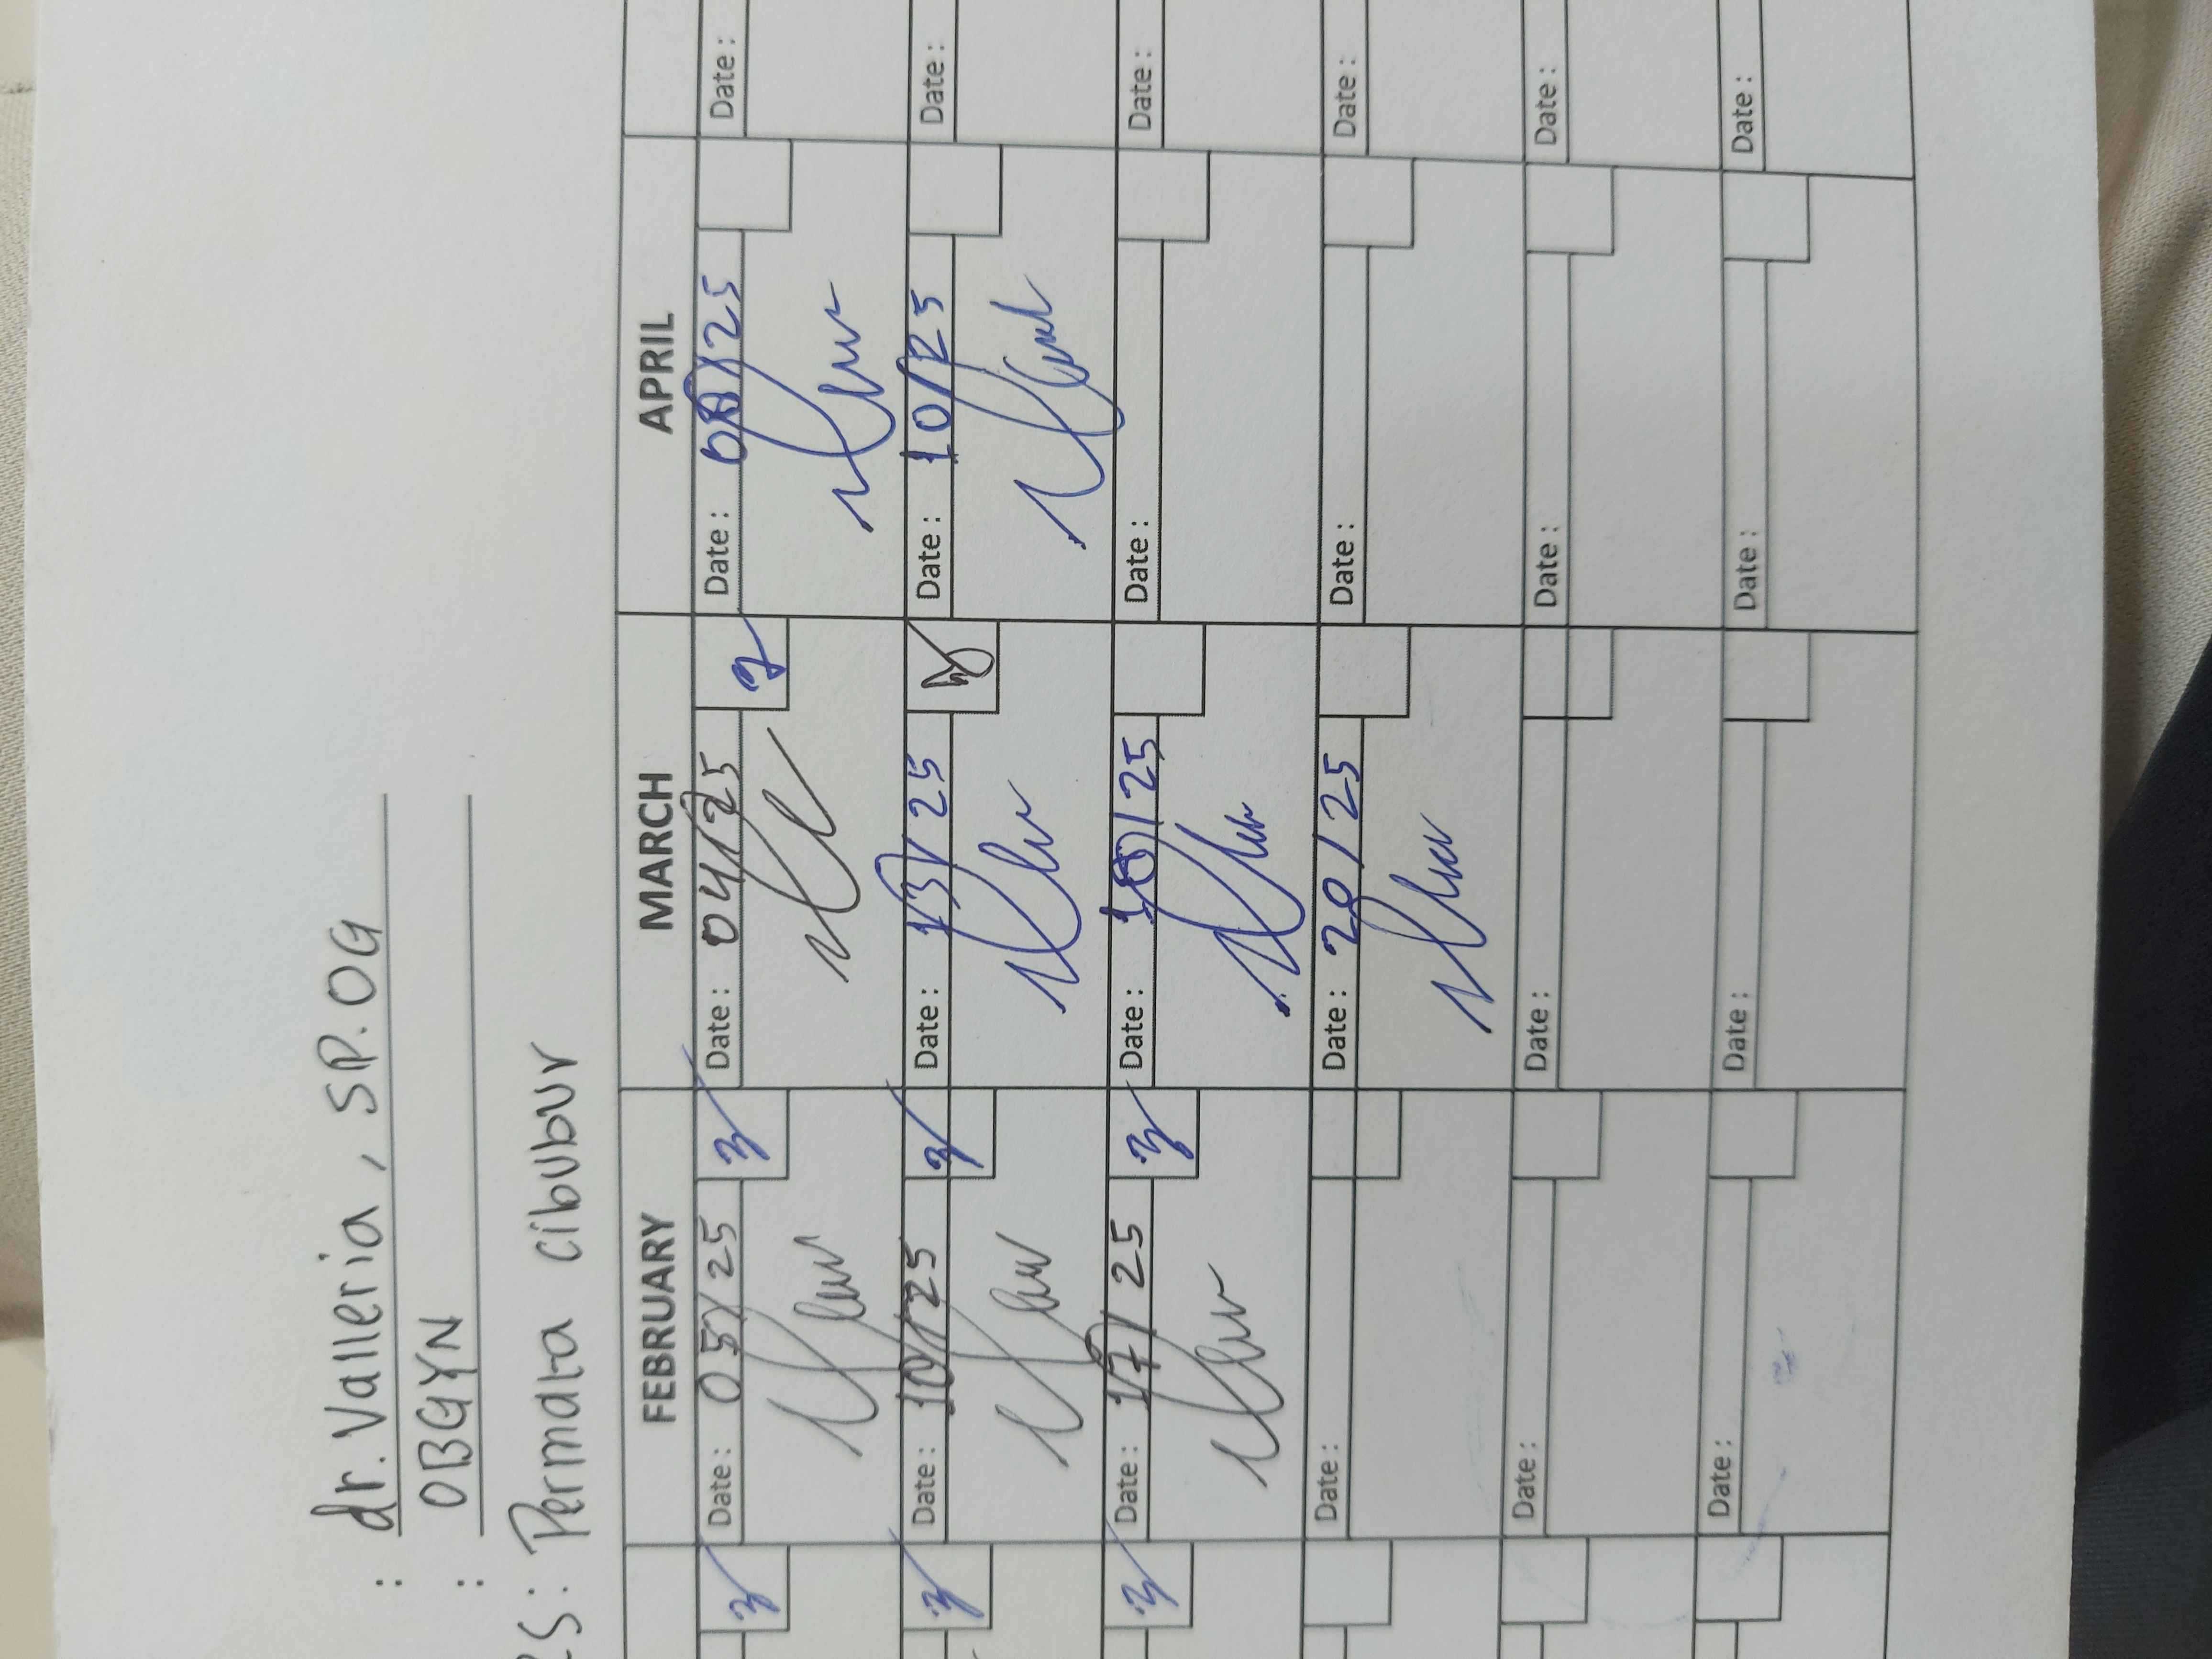 : dr. Valleria, SP.OG
: OBGYN
RS: Permata cibubur
FEBRUARY MARCH APRIL
Date: 05/25 Date: 04/25 Date: 08/25 Date:
Date: 10/25 Date: 13/25 Date: 10/25 Date:
Date: 17/25 Date: 18/25 Date: Date:
Date: Date: 20/25 Date: Date:
Date: Date: Date: Date:
Date: Date: Date: Date: